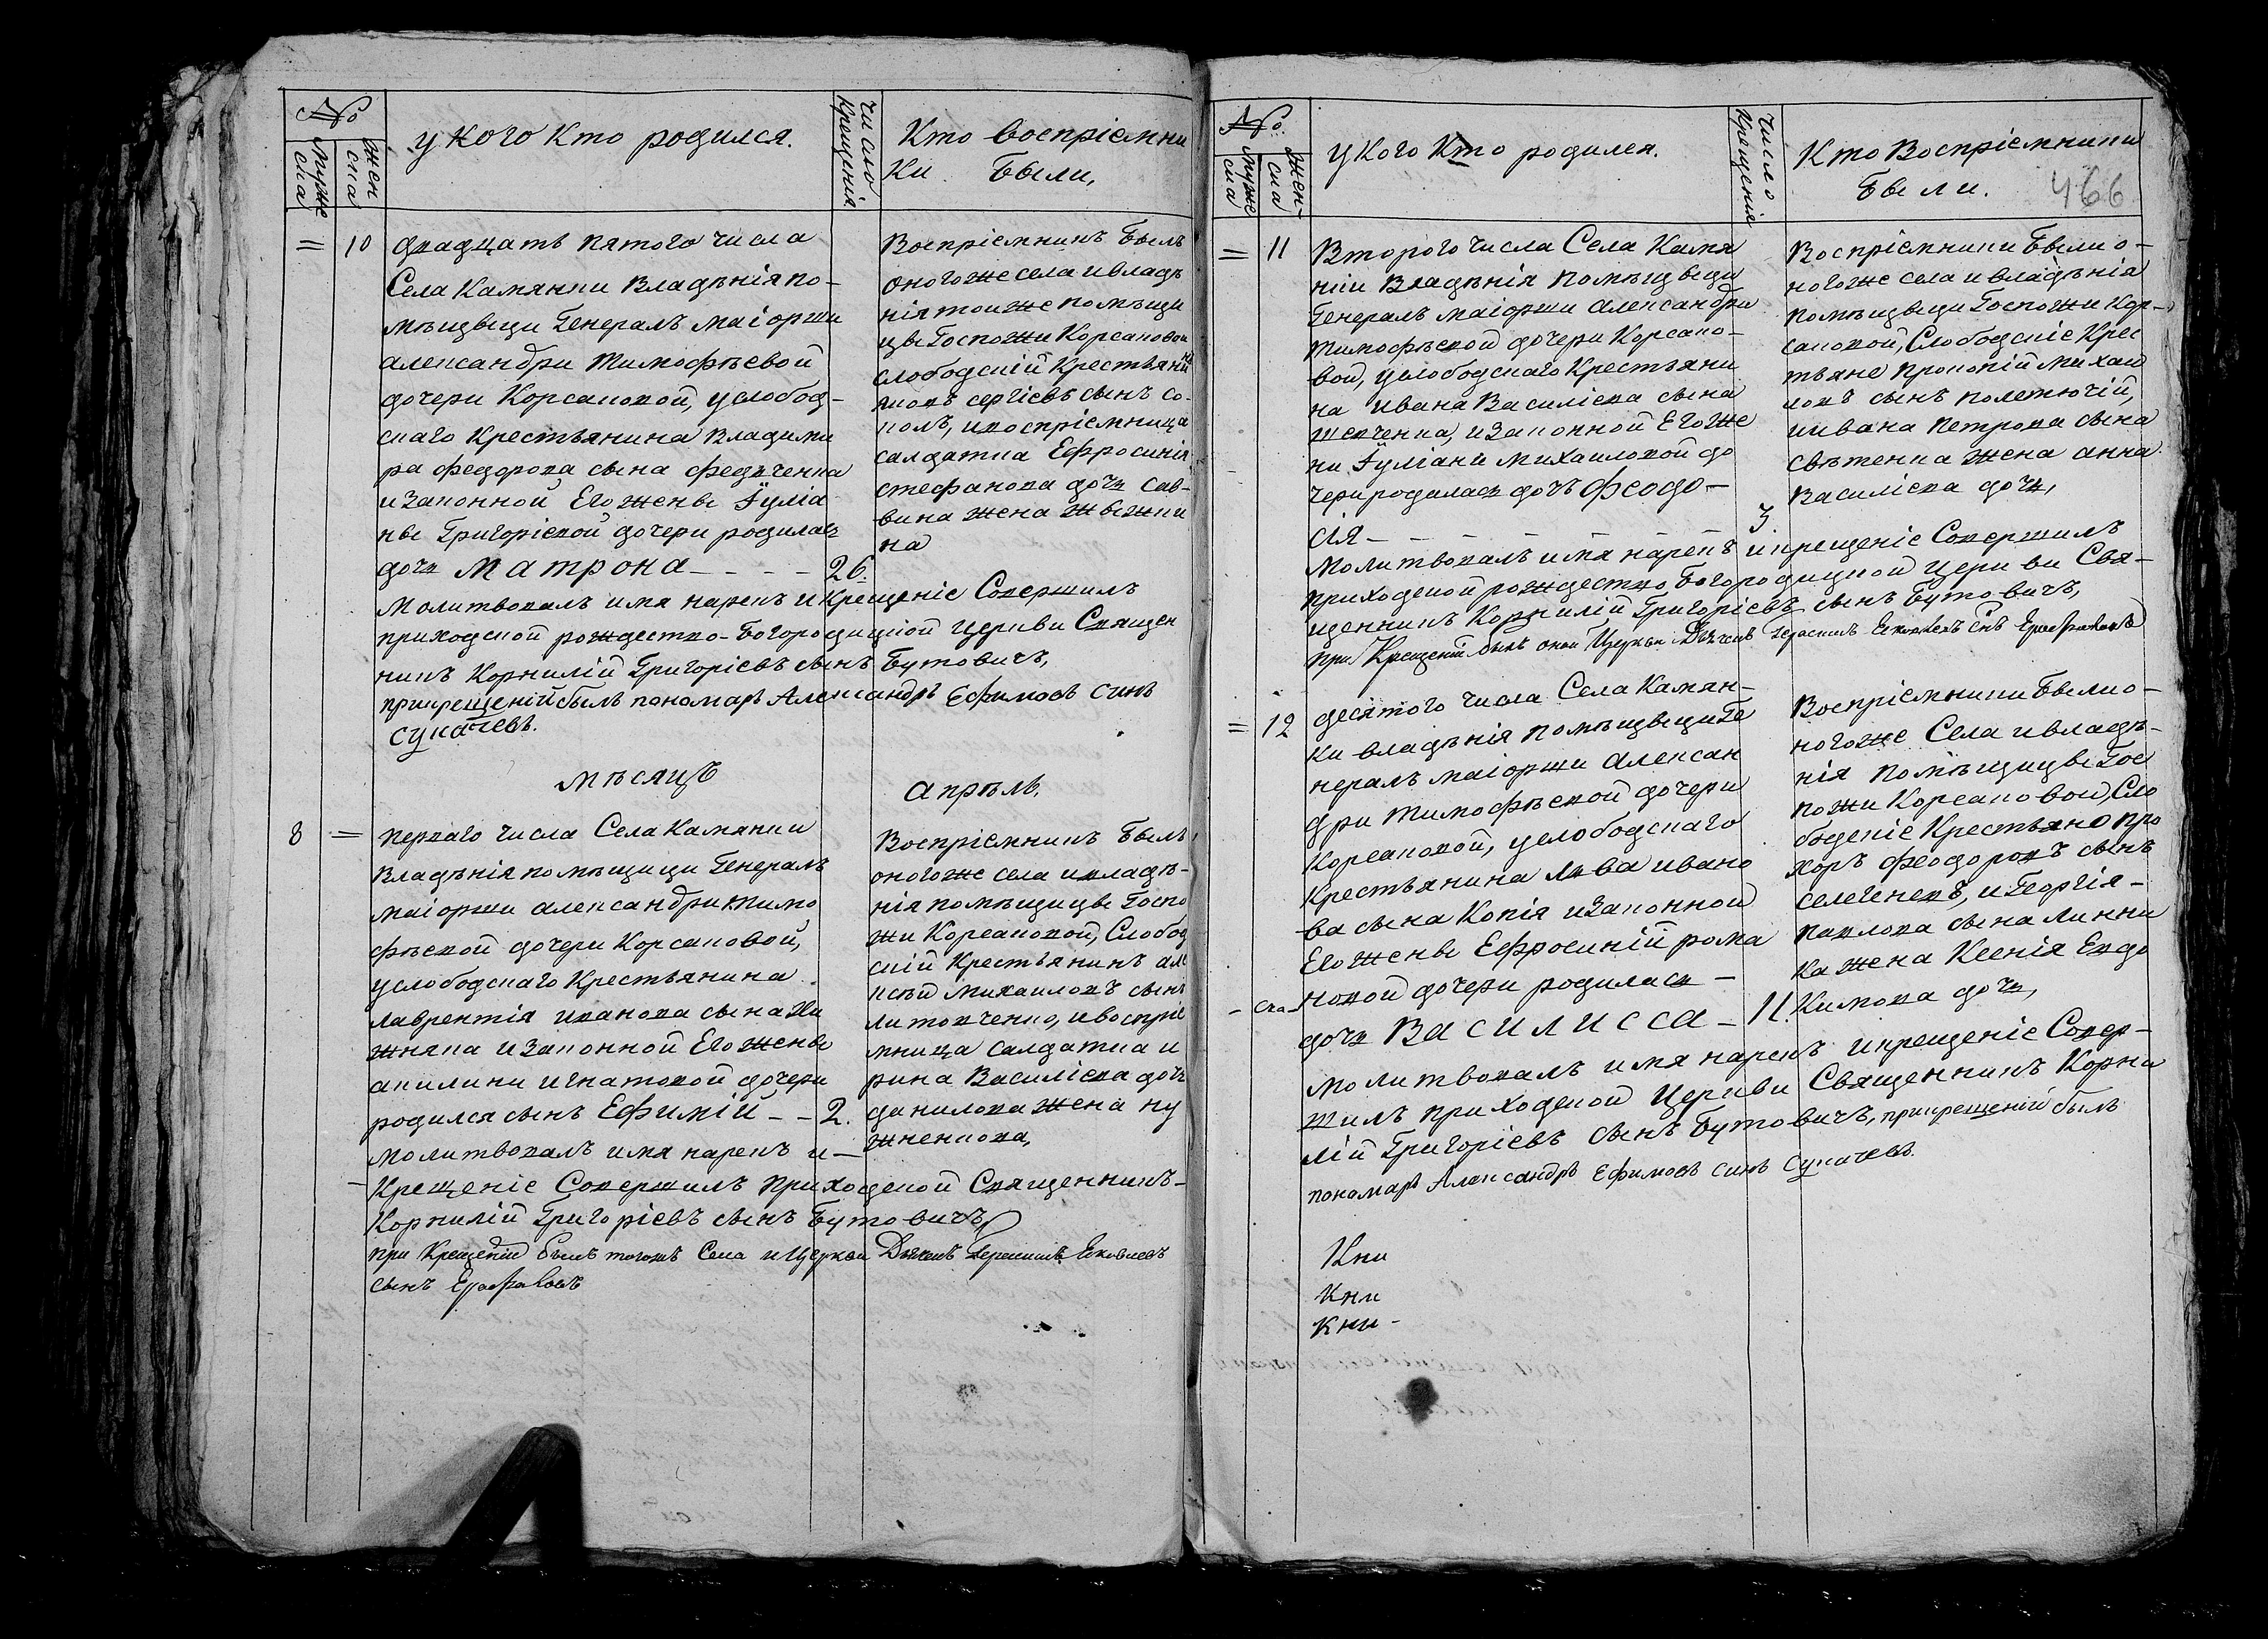 №
муже
ска
жен
ска
у кого кто родился.
число
крещенія
Кто воспріемни
ки были,
= 10
двадцать пятого числа
Села Камянки Владѣнія по-
мѣщицы Генералъ маіорши
александры тимофѣевой
дочери Корсаковой, услобод-
скаго крестьянина Владими
ра федорова сына федченка
изаконной Его жены Іуліа
ны Григоріевой дочери родилась
дочь Матрона - - - - 26.
Воспріемникъ былъ
оногоже села ивладѣ
нія тоиже помѣщи
цы Госпожи Корсаковой
слободскій крестьянинъ
яковъ сергіевъ сынъ со-
колъ, ивоспріемница
салдатка Ефросинія
стефанова дочь сав-
вина жена жвжки
на
Молитвовалъ имя нарекъ и крещеніе Совершилъ
приходской рождество-Богородицкой церкви Священ
никъ Корнилій Григоріевъ сынъ Бутовичъ,
прикрещеній былъ пономарь Александръ Ефимовъ синъ
Сукачевъ.
мѣсяцъ апрѣль.
8 =
перваго числа Села Камянки
владѣнія помѣщицы Генералъ
маіорши александры тимо
фѣевой дочери Корсаковой,
услободскаго Крестьянина
лаврентія иванова сына Ки
жняка изаконной Его жены
акилины игнатовой дочери
родился сынъ Ефимій - - 2.
Воспріемникъ былъ
оногоже села ивладѣ-
нія помѣщицы Госпо
жи Корсаковой, Слобод
скій Крестьянинъ але
ксѣй Михаиловъ сынъ
литовченко, ивоспріе
мница салдатка и
рина Василіева дочь
данилова жена ку
жненкова,
молитвовалъ имя нарекъ и-
крещеніе Совершилъ приходской Священникъ-
Корнилій Григоріевъ сынъ Бутовичъ,
при Крещеніи былъ тогожъ Села и Церкви Дьячекъ Герасимъ Яковлевъ
сынъ Ерофаловъ
№.
муже
ска
жен-
ска
у кого кто родился.
число
крещенія
Кто Воспріемники
были.
466
= 11
Второго числа Села Камя
нки Владѣнія помѣщицы
Генералъ маіорши александры
тимофѣевой дочери Корсако-
вой, услободскаго Крестьяни
на ивана Василіева сына
шевченка, изаконной Его же
ны Іуліаны Михаиловой до
чери родилась дочь Феодо-
сія - - - - 3.
Воспріемники были о-
ногоже села ивладѣнія
помѣщицы Госпожи Кор-
саковой, Слободскіе Крес
тьяне прокопій михаи
ловъ сынъ полетючій,
иивана петрова сына
свѣтенка жена анна
Василіева дочь,
молитвовалъ имя нарекъ икрещеніе Совершилъ
приходской рождество Богородицкой церкви Свя-
щенникъ Корнилій Григоріевъ сынъ Бутовичъ,
при Крещеніи былъ оной Церкви Дьячекъ Герасимъ Яковлевъ снъ Ерофаловъ
= 12
десятого числа Села Камян-
ки владѣнія помѣщицы Ге
нералъ маіорши алексан
дры тимофѣевой дочери
Корсаковой, услободскаго
Крестьянина Лва ивано
ва сына Копія изаконной
Его жены Ефросиній рома
новой дочери родилась -
дочь Василисса - 11.
Воспріемники были о-
ногоже Села ивладѣ-
нія помѣщицы Гос
пожи Корсаковой, Сло
бодскіе Крестьяне про
хоръ феодоровъ сынъ
селегеневъ, и георгія-
павлова сына линни
ка жена Ксенія Евдо
кимова дочь,
молитвовалъ имя нарекъ икрещеніе Совер-
шилъ приходской церкви Священникъ Корни
лій Григоріевъ сынъ Бутовичъ, прикрещеній былъ
пономарь Александръ Ефимовъ синъ Сукачевъ.
- ска -
Кни
Кни
Кни -